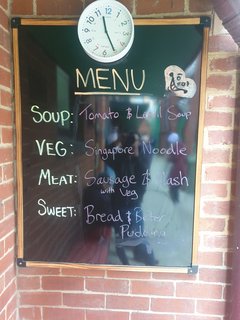 MENU
SOUP: Tomato & Lentil Soup
VEG: Singapore Noodle
MEAT: Sausage & Mash
with Veg
SWEET: Bread & Butter
Pudding